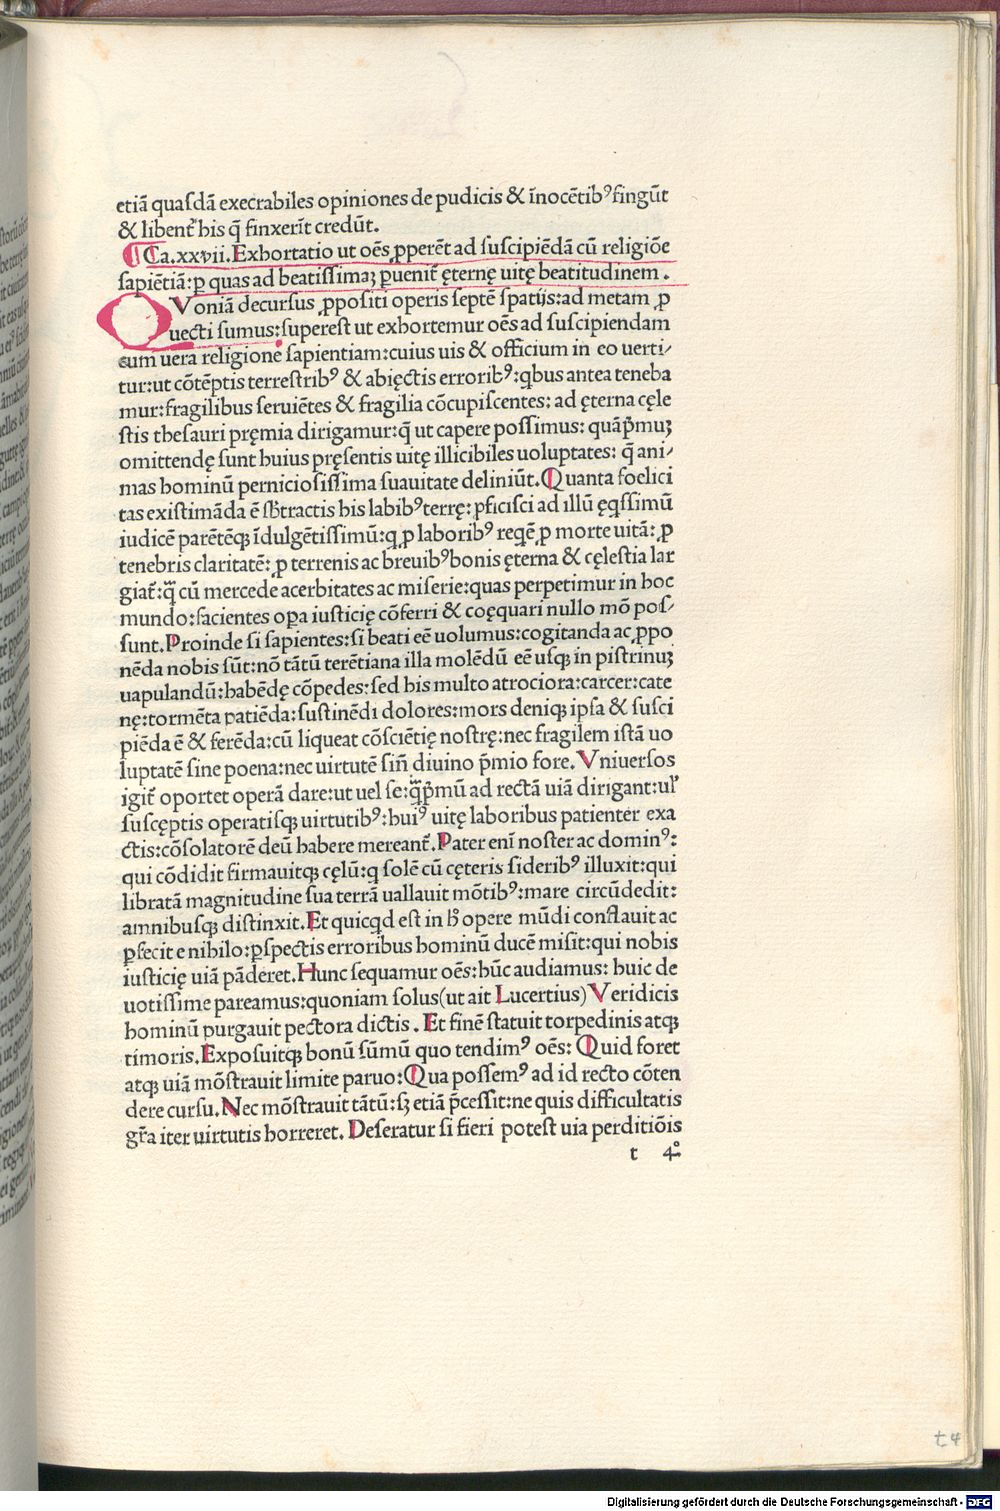 etiã quaſdã execrabiles opiniones de pudicis & ĩnocẽtibꝰ fingũt
& libent᷑ his q̃ finxerĩt credũt.
¶ Ca.xxvii. Exhortatio ut oẽs ꝓperẽt ad ſuſcipiẽdã cũ religiõe
ſapiẽtiã: ꝑ quas ad beatiſſimaꝫ ꝑuenit᷑ ęternę uitę beatitudinem.
QVoniã decurſus ꝓpoſiti operis ſeptẽ ſpatijs: ad metam ꝓ
uecti ſumus: ſupereſt ut exhortemur oẽs ad ſuſcipiendam
cum uera religione ſapientiam: cuius uis & officium in eo uerti/
tur: ut cõtẽptis terreſtribꝰ & abięctis erroribꝰ: qbus antea teneba
mur: fragilibus ſeruiẽtes & fragilia cõcupiſcentes: ad ęterna cęle
ſtis theſauri pręmia dirigamur: q̃ ut capere poſſimus: quãp̃muꝫ
omittendę ſunt huius pręſentis uitę illicibiles uoluptates: q̃ ani/
mas hominũ pernicioſiſſima ſuauitate deliniũt. Quanta foelici
tas exiſtimãda ẽ ſb̃tractis his labibꝰ terrę: ꝓficiſci ad illũ ęqſſimũ
iudicẽ parẽtẽqꝫ ĩdulgẽtiſſimũ: q ꝓ laboribꝰ reqẽ ꝓ morte uitã: ꝓ
tenebris claritatẽ: ꝓ terrenis ac breuibꝰ bonis ęterna & cęleſtia lar
giat᷑: q̃ cũ mercede acerbitates ac miſerie: quas perpetimur in hoc
mundo: facientes oꝑa iuſticię cõferri & coęquari nullo mõ poſ/
ſunt. Proinde ſi ſapientes: ſi beati eẽ uolumus: cogitanda ac ꝓpo
nẽda nobis ſũt: nõ tãtũ terẽtiana illa molẽdũ eẽ uſqꝫ in piſtrinuꝫ
uapulandũ: habẽdę cõpedes: ſed his multo atrociora: carcer: cate
nę: tormẽta patiẽda: ſuſtinẽdi dolores: mors deniqꝫ ipſa & ſuſci
piẽda ẽ & ferẽda: cũ liqueat cõſciẽtię noſtrę: nec fragilem iſtã uo
luptatẽ ſine poena: nec uirtutẽ ſiñ diuino p̃mio fore. Vniuerſos
igit᷑ oportet operã dare: ut uel ſe: q̃p̃mũ ad rectã uiã dirigant: ul᷑
ſuſcęptis operatiſqꝫ uirtutibꝰ: huiꝰ uitę laboribus patienter exa
ctis: cõſolatorẽ deũ habere mereant᷑. Pater eni᷑ noſter ac dominꝰ:
qui cõdidit firmauitqꝫ cęlũ: q ſolẽ cũ cęteris ſideribꝰ illuxit: qui
libratã magnitudine ſua terrã uallauit mõtibꝰ: mare circũdedit:
amnibuſqꝫ diſtinxit. Et quicqd eſt in h̃ opere mũdi conflauit ac
ꝑfecit e nihilo: ꝑſpectis erroribus hominũ ducẽ miſit: qui nobis
iuſticię uiã pãderet. Hunc ſequamur oẽs: hũc audiamus: huic de
uotiſſime pareamus: quoniam ſolus (ut ait Lucertius) Veridicis
hominũ purgauit pectora dictis. Et finẽ ſtatuit torpedinis atqꝫ
timoris. Expoſuitqꝫ bonũ ſũmũ quo tendimꝰ oẽs: Quid foret
atqꝫ uiã mõſtrauit limite paruo: Qua poſſemꝰ ad id recto cõten
dere curſu. Nec mõſtrauit tãtũ: ſꝫ etiã p̃ceſſit: ne quis difficultatis
gr̃a iter uirtutis horreret. Deſeratur ſi fieri poteſt uia perditiõis
t 4°
t4
Digitalisierung gefördert durch die Deutsche Forschungsgemeinschaft - DFG